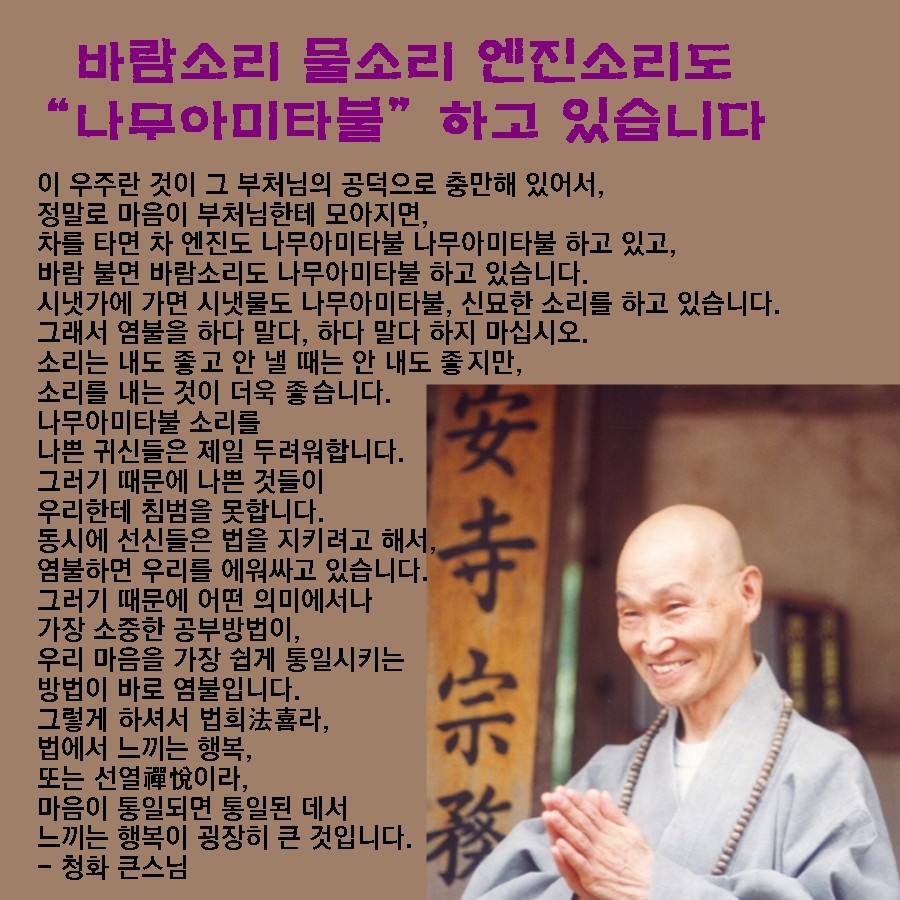 바람소리 물소리 엔진소리도
“나무아미타불” 하고 있습니다
이 우주란 것이 그 부처님의 공덕으로 충만해 있어서,
정말로 마음이 부처님한테 모아지면,
차를 타면 차 엔진도 나무아미타불 나무아미타불 하고 있고,
바람 불면 바람소리도 나무아미타불 하고 있습니다.
시냇가에 가면 시냇물도 나무아미타불, 신묘한 소리를 하고 있습니다.
그래서 염불을 하다 말다, 하다 말다 하지 마십시오.
소리는 내도 좋고 안 낼 때는 안 내도 좋지만,
소리를 내는 것이 더욱 좋습니다.
나무아미타불 소리를
나쁜 귀신들은 제일 두려워합니다.
그러기 때문에 나쁜 것들이
우리한테 침범을 못합니다.
동시에 선신들은 법을 지키려고 해서,
염불하면 우리를 에워싸고 있습니다.
그러기 때문에 어떤 의미에서나
가장 소중한 공부방법이,
우리 마음을 가장 쉽게 통일시키는
방법이 바로 염불입니다.
그렇게 하셔서 법희法喜라,
법에서 느끼는 행복,
또는 선열禪悅이라,
마음이 통일되면 통일된 데서
느끼는 행복이 굉장히 큰 것입니다.
- 청화 큰스님
安寺宗務